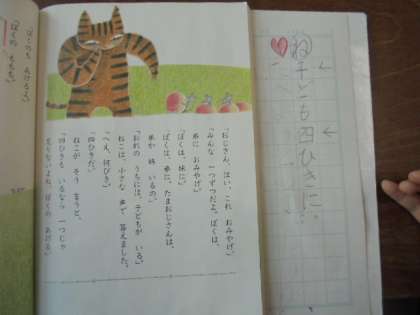 子ども四ひきに。
「おじさん、はい、これ おみやげ。」
「みんな 一つずつだよ。ぼくは、
弟に おみやげ。」
「ぼくは、妹に。」
「ぼくは、弟に。たまおじさんは、
弟か 妹 いるの。」
「おれの うちには、子どもが いる。」
ねこは、小さな 声で 答えました。
「へえ、何びき。」
「四ひきだ。」
ねこが そう 言うと、
「四ひきも いるなら 一つじゃ
足りないよね。ぼくの あげる。」
「ぼくのも あげるよ。」
「ぼくの ももも。」